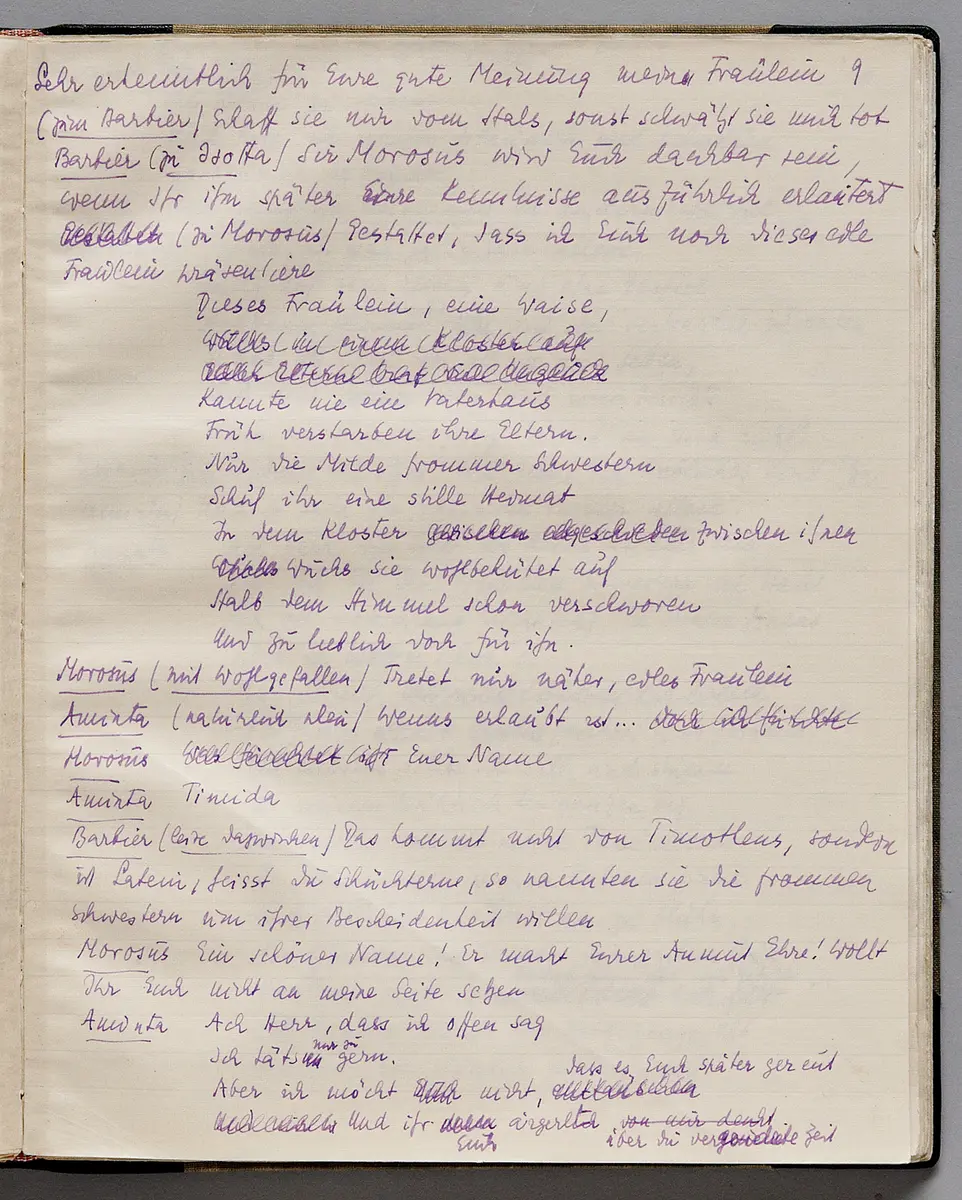 Sehr erkenntlich für Eure gute Meinung mein Fraülein 9
(zum Barbier) Schaff sie mir vom Hals, sonst schwätzt sie mich tot
Barbier (zu Isotta) Sir Morosus wird Euch dankbar sein,
wenn Ihr ihm später Eure Kenntnisse ausführlich erlaütert
(zu Morosus) Gestattet, dass ich Euch noch dieses edle
Fraülein präsentiere
Dieses Fraülein, eine Waise,
in einem Kloster auf
Kannte nie ein Vaterhaus
Früh verstarben ihre Eltern.
Nur die Milde frommer Schwestern
Schuf ihr eine stille Heimat
In dem Kloster abgeschieden zwischen ihnen
wuchs sie wohlbehütet auf
Halb dem Himmel schon verschworen
Und zu lieblich doch für ihn.
Morosus (mit Wohlgefallen) Tretet nur näher, edles Fraulein
Aminta (natürlich klein) Wenns erlaubt ist...
Morosus ist Euer Name
Aminta Timida
Barbier (leise dazwischen) Das kommt nicht von Timotheus, sondern
ist Latein, heisst die Schüchterne, so nannten sie die frommen
Schwestern um ihrer Bescheidenheit willen
Morosus Ein schöner Name! Er macht Eurer Anmut Ehre! Wollt
Ihr Euch nicht an meine Seite setzen
Aminta Ach Herr, dass ich offen sag
Ich täts nur zu gern.
Aber ich möcht nicht, dass es Euch später gereut
Und ihr Euch ärgert von mir denkt
über die vergeudete Zeit